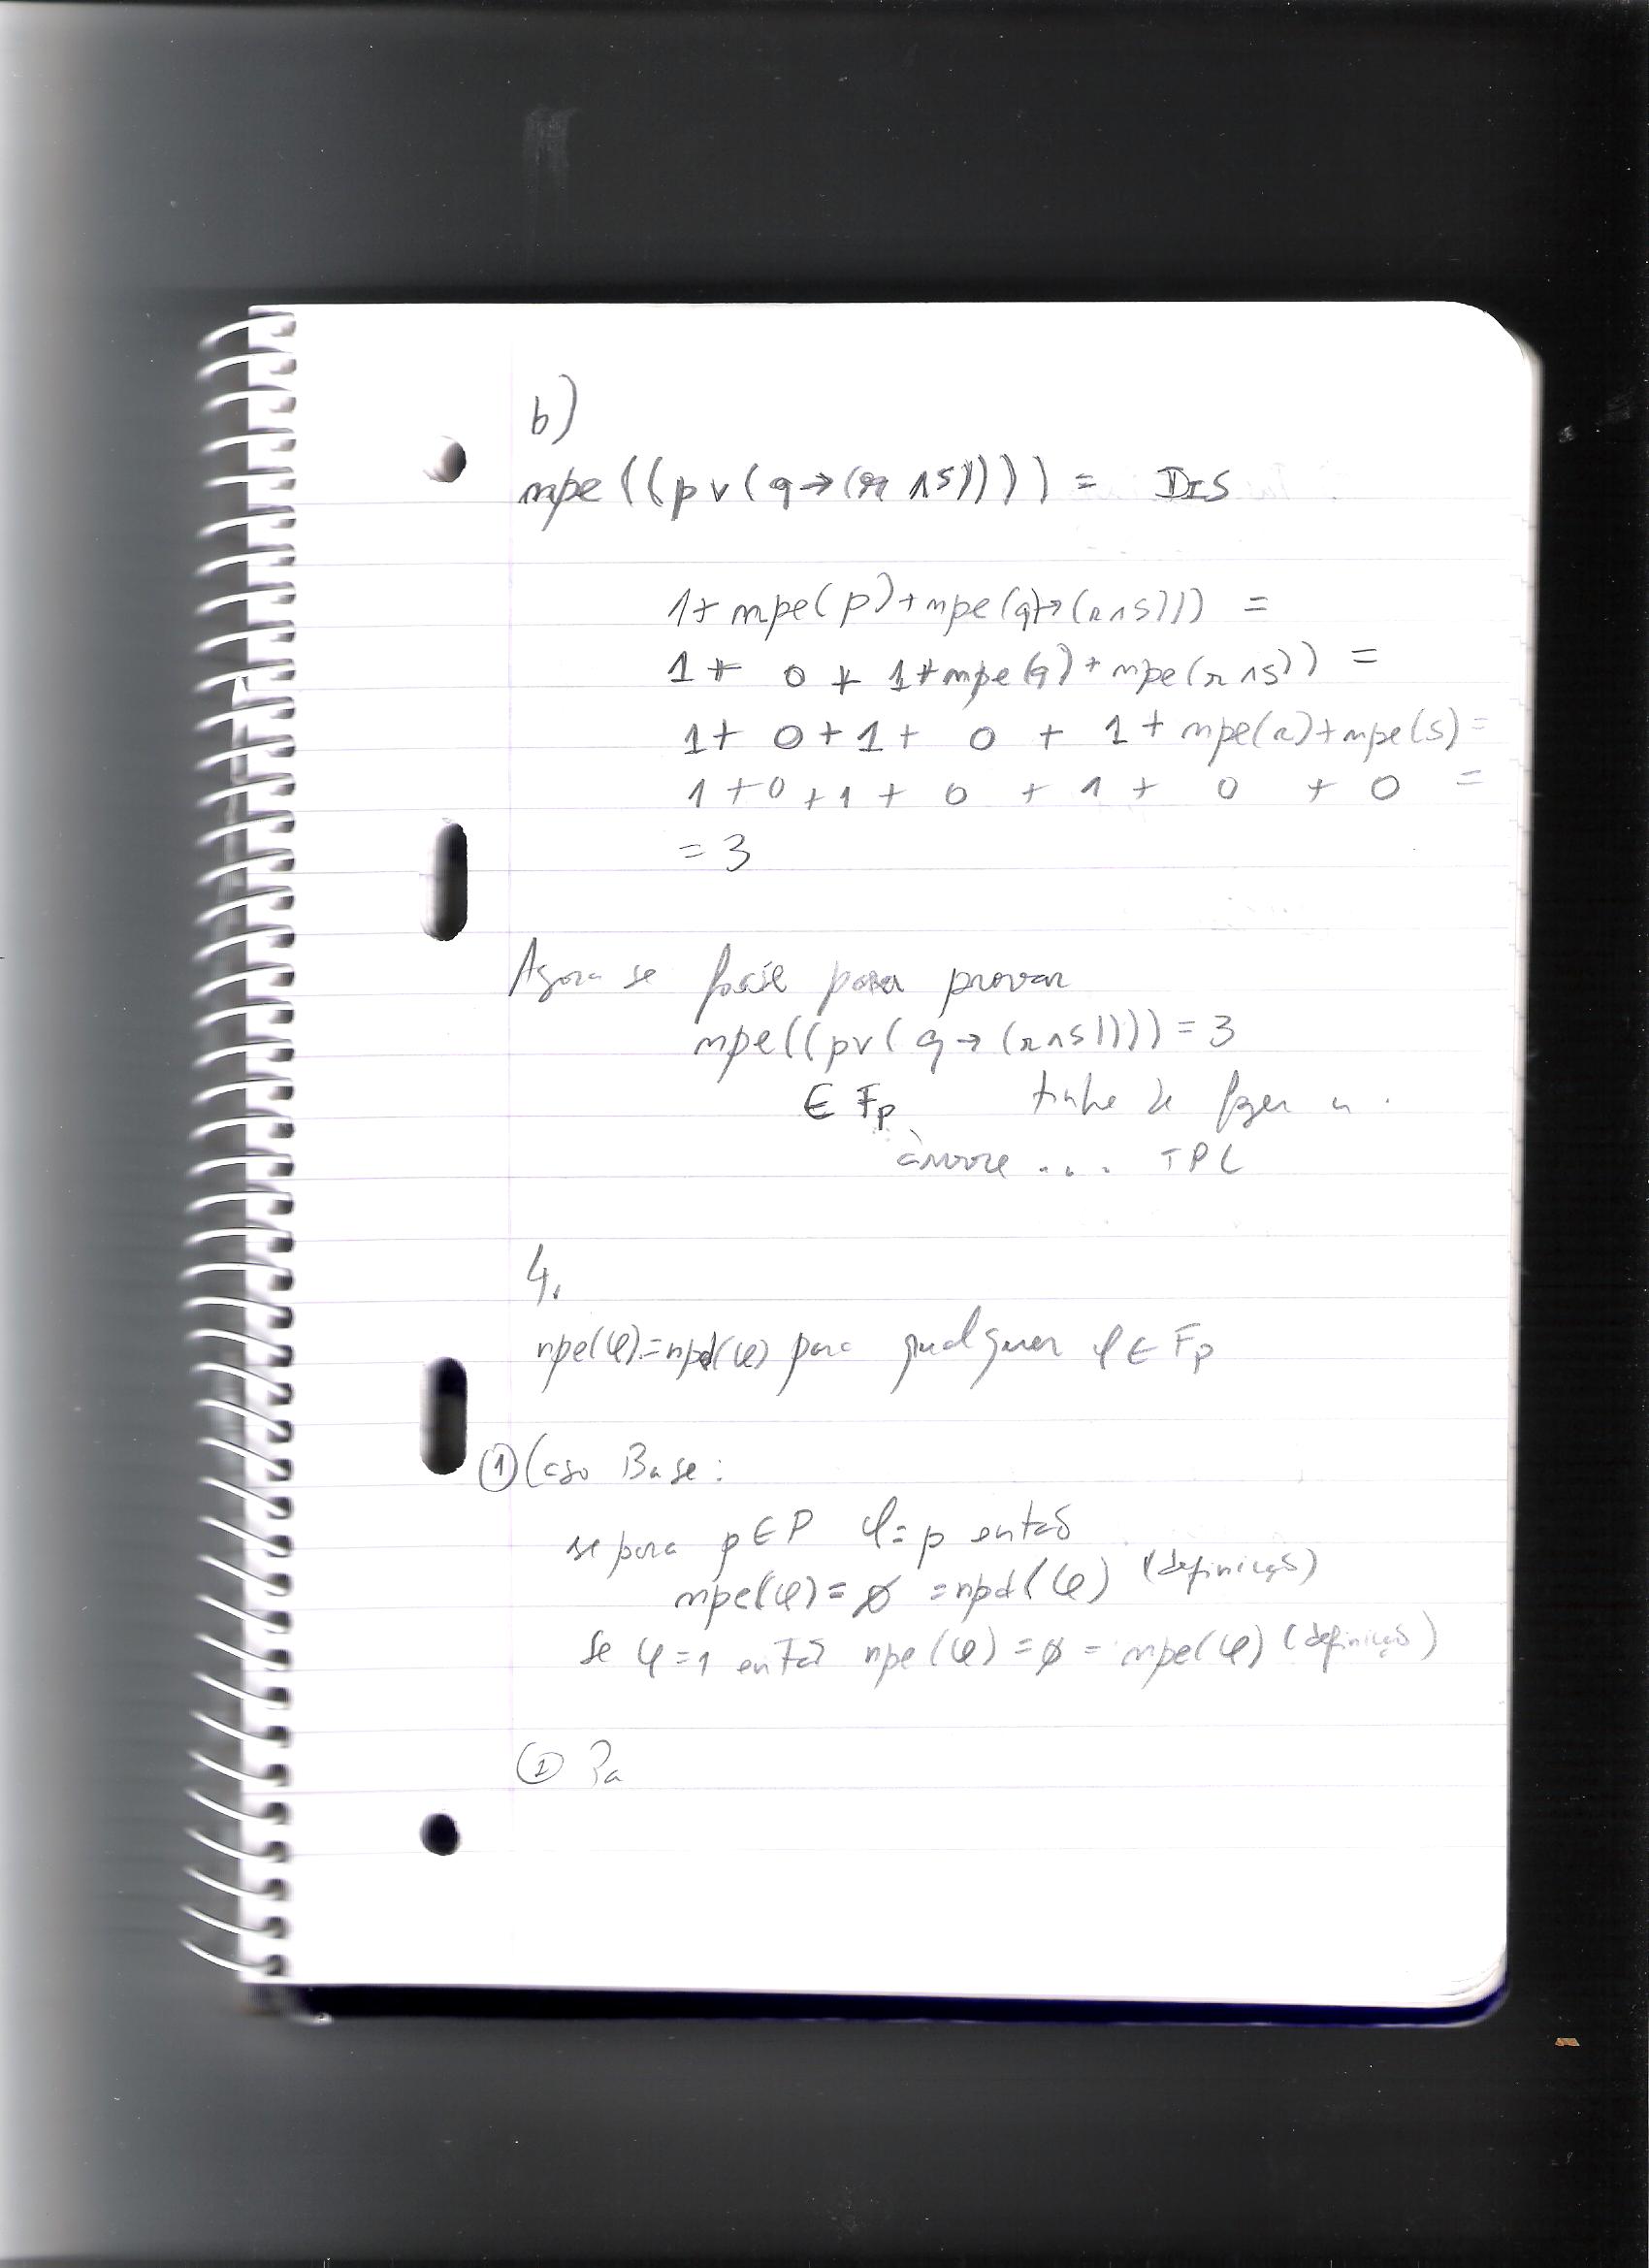 b)
npe((p∨(q→(r∧s)))) = DIS
1+npe(p)+npe(q→(r∧s))) =
1+ 0 + 1+npe(q)+npe(r∧s)) =
1+ 0+1+ 0 + 1+npe(r)+npe(s)=
1+0+1+ 0 + 1+ 0 + 0 =
=3
Agora se fosse para provar
npe((p∨(q→(r∧s))))=3
∈ Fp tinha de fazer a
árvore .... TPC
4.
npe(φ)=npd(φ) para qualquer φ∈Fp
① Caso Base:
se para p∈P φ=p então
npe(φ)=∅ =npd(φ) (definição)
se φ=⊥ então npe(φ)=∅=npe(φ) (definição)
② Pa